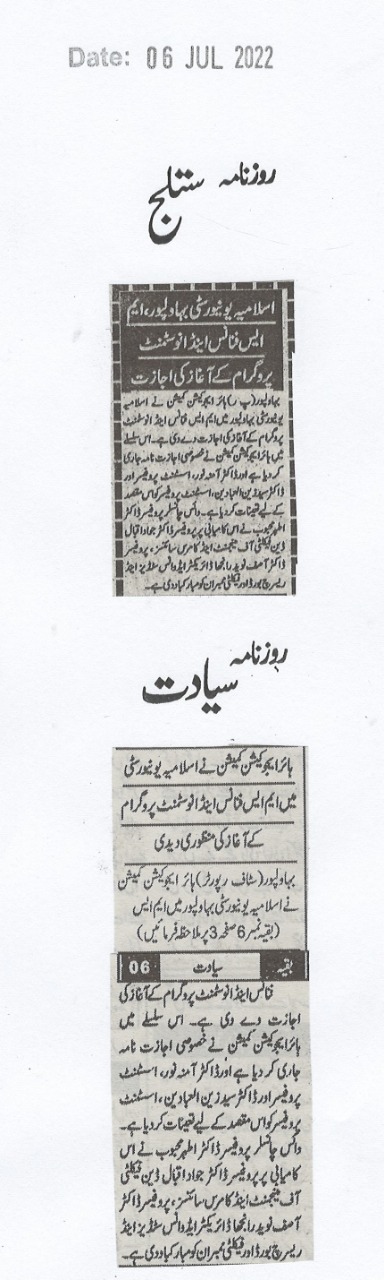 Date: 06 JUL 2022
روزنامہ ستلج
اسلامیہ یونیورسٹی بہاولپور، ایم
ایس فنانس اینڈ انوسٹمنٹ
پروگرام کے آغاز کی اجازت
بہاولپور (پ ر) ہائر ایجوکیشن کمیشن نے اسلامیہ
یونیورسٹی بہاولپور میں ایم ایس فنانس اینڈ انوسٹمنٹ
پروگرام کے آغاز کی اجازت دے دی ہے۔ اس سلسلے
میں ہائر ایجوکیشن کمیشن نے خصوصی اجازت نامہ جاری
کر دیا ہے اور ڈاکٹر آمنہ نور، اسسٹنٹ پروفیسر اور
ڈاکٹر سید زین العابدین، اسسٹنٹ پروفیسر کو اس مقصد
کے لیے تعینات کر دیا ہے۔ وائس چانسلر پروفیسر ڈاکٹر
اطہر محبوب نے اس کامیابی پر پروفیسر ڈاکٹر جواد اقبال
ڈین فیکلٹی آف مینجمنٹ اینڈ کامرس سائنسز، پروفیسر
ڈاکٹر آصف نوید رانجھا ڈائریکٹر ایڈوانس سٹڈیز اینڈ
ریسرچ بورڈ اور فیکلٹی ممبران کو مبارکباد دی ہے۔
روزنامہ سیادت
ہائر ایجوکیشن کمیشن نے اسلامیہ یونیورسٹی
میں ایم ایس فنانس اینڈ انوسٹمنٹ پروگرام
کے آغاز کی منظوری دیدی
بہاولپور (سٹاف رپورٹر) ہائر ایجوکیشن کمیشن
نے اسلامیہ یونیورسٹی بہاولپور میں ایم ایس
(بقیہ نمبر 6 صفحہ 3 پر ملاحظہ فرمائیں)
بقیہ سیادت 06
فنانس اینڈ انوسٹمنٹ پروگرام کے آغاز کی
اجازت دے دی ہے۔ اس سلسلے میں
ہائر ایجوکیشن کمیشن نے خصوصی اجازت نامہ
جاری کر دیا ہے اور ڈاکٹر آمنہ نور، اسسٹنٹ
پروفیسر اور ڈاکٹر سید زین العابدین، اسسٹنٹ
پروفیسر کو اس مقصد کے لیے تعینات کر دیا ہے۔
وائس چانسلر پروفیسر ڈاکٹر اطہر محبوب نے اس
کامیابی پر پروفیسر ڈاکٹر جواد اقبال ڈین فیکلٹی
آف مینجمنٹ اینڈ کامرس سائنسز، پروفیسر ڈاکٹر
آصف نوید رانجھا ڈائریکٹر ایڈوانس سٹڈیز اینڈ
ریسرچ بورڈ اور فیکلٹی ممبران کو مبارکباد دی ہے۔